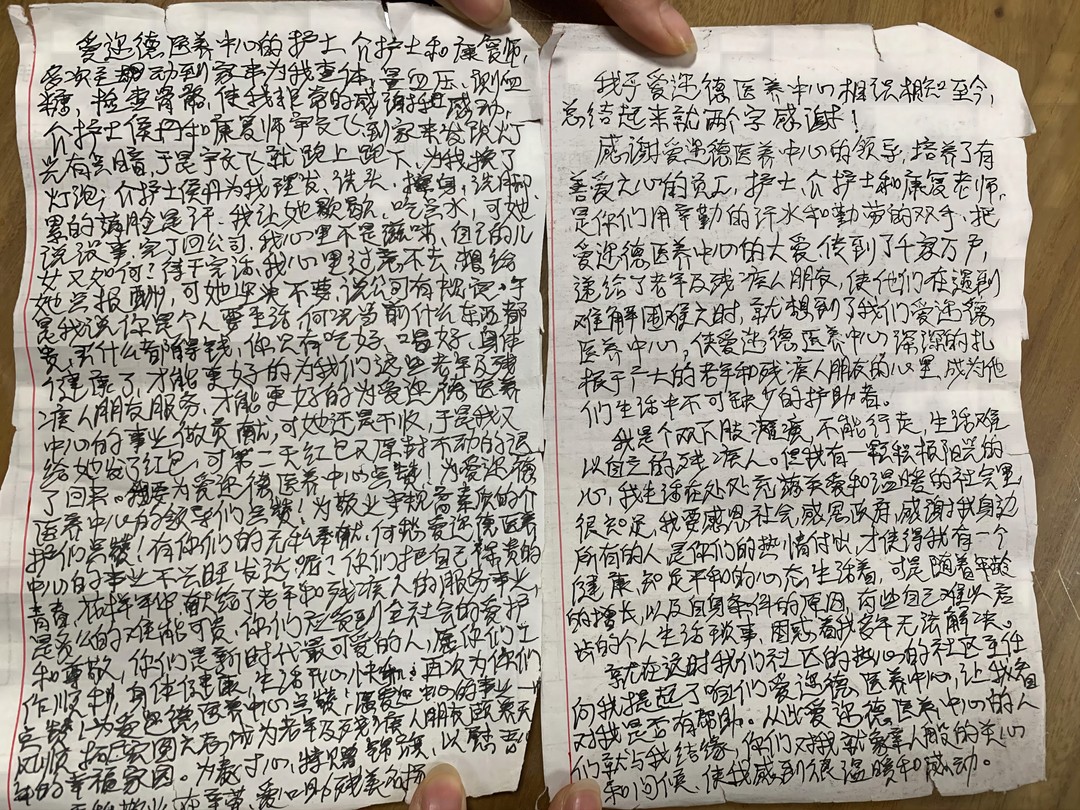 爱迩德医养中心的护士、介护士和康复师,
多次主动到家来为我查体,量血压,测血
糖,检查骨骼,使我非常的感谢和感动,
介护士侯丹和康复师宇文飞到家来发现灯
光有点暗,于是宇文飞就跑上跑下,为我换了
灯泡,介护士侯丹为我理发、洗头、擦身、洗脚
累的满脸是汗。我让她歇歇,吃点水,可她
说没事,完了回公司,我心里不是滋味,自己的儿
女又如何?待干完活,我心里过意不去,想给
她点报酬,可她坚决不要,说公司有规定。于
是我说你是个人要生活何况当前什么东西都
贵,买什么都得钱,你只有吃好、喝好、身体
健康了,才能更好的为我们这些老年及残
疾人朋友服务,才能更好的为爱迩德医养
中心的事业做贡献,可她还是不收,于是我又
给她发了红包,可第二天红包又原封不动的退
了回来。我要为爱迩德医养中心点赞!为爱迩德
医养中心的领导们点赞!为敬业手规高素质的介
护们点赞!有你们的无私奉献,何愁爱迩德医养
中心的事业不兴旺发达呢?你们把自己珍贵的
青春、花样年华,献给了老年和残疾人的服务事业,
是多么的难能可贵,你们应受到全社会的爱护
和尊敬,你们是新时代最可爱的人,愿你们工
作顺利,身体健康,生活开心快乐。再次为你们
点赞!为爱迩德医养中心点赞!愿爱迩中心的事业一
风顺,拓展宏图大志,成为老年及残疾人朋友欧葬天
年的幸福家园。为表寸心,特赠锦旗,以慰
我于爱迩德医养中心相识相知至今,
总结起来就两个字感谢!
感谢爱迩德医养中心的领导,培养了有
善爱之心的员工,护士、介护士和康复老师。
是你们用辛勤的汗水和勤劳的双手,把
爱迩德医养中心的大爱,传到了千家万户,
递给了老年及残疾人朋友,使他们在遇到
难解困难之时,就想到了我们爱迩德
医养中心,使爱迩德医养中心深深的扎
根于广大的老年和残疾人朋友的心里,成为他
们生活中不可缺少的护助者。
我是个双下肢瘫痪,不能行走,生活难
以自立的残疾人。但我有一颗积极阳光的
心,我生活在处处充满关爱和温暖的社会里
很知足,我要感恩社会,感恩政府,感谢我身边
所有的人,是你们的热情付出,才使得我有一个
健康,知足平和的心态生活着,可是随着年龄
的增长,以及自身条件的原因,有些自己难以启
齿的个人生活琐事,困惑着我多年无法解决。
就在这时我们社区的热心的社区主任
向我提起了咱们爱迩德医养中心,让我看
对我是否有帮助。从此爱迩德医养中心的人
们就与我结缘,你们对我就象亲人般的关心
和问候,使我感到很温暖和感动。